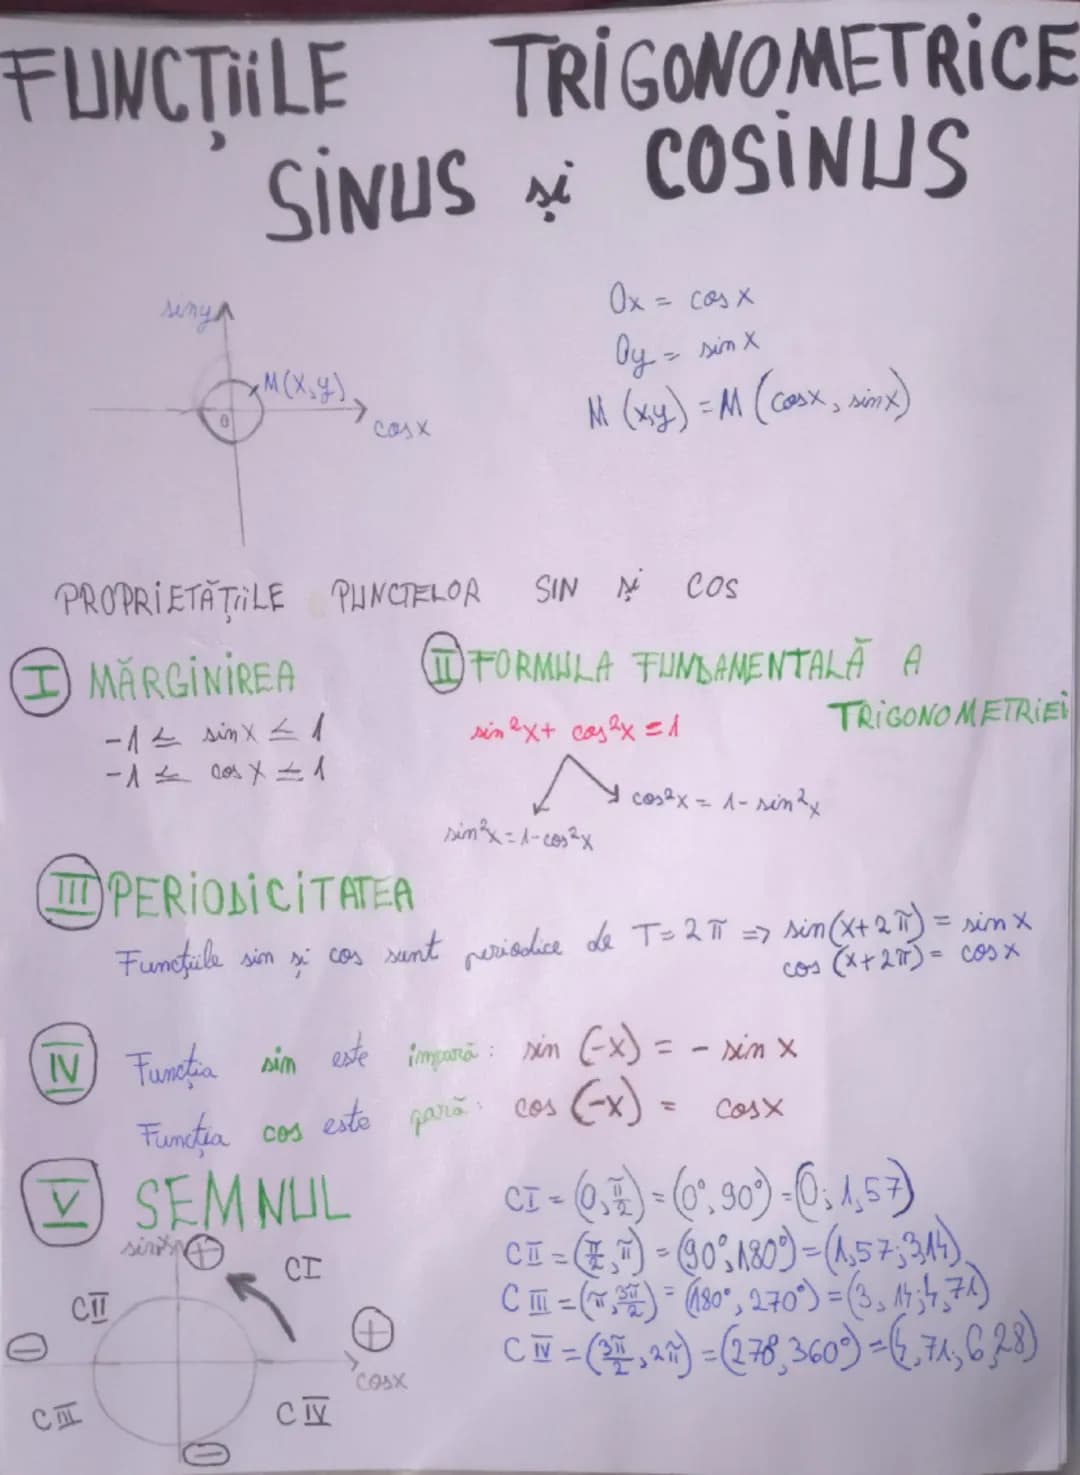 FUNCȚIILE TRIGONOMETRICE
SINUS și COSINUS
siny
M(x,y)
0
cosx
Ox = cos x
Oy = sin x
M (x,y) = M (cosx, sinx)
PROPRIETĂȚIILE PUNCTELOR SIN și COS
I MĂRGINIREA
-1 ≤ sin x ≤ 1
-1 ≤ cos x ≤ 1
II FORMULA FUNDAMENTALĂ A
TRIGONOMETRIEI
sin²x + cos²x = 1
cos²x = 1 - sin²x
sin²x = 1 - cos²x
III PERIODICITATEA
Funcțiile sin și cos sunt periodice de T = 2π => sin(x+2π) = sin x
cos (x+2π) = cos x
IV Funcția sin este impară: sin (-x) = - sin x
Funcția cos este pară: cos (-x) = cosx
V SEMNUL
sinx
+
CI
CII
-
+
cosx
CIII
CIV
-
CI = (0, π/2) = (0°, 90°) = (0; 1,57)
CII = (π/2, π) = (90°, 180°) = (1,57; 3,14)
CIII = (π, 3π/2) = (180°, 270°) = (3,14; 4,71)
CIV = (3π/2, 2π) = (270°, 360°) = (4,71; 6,28)